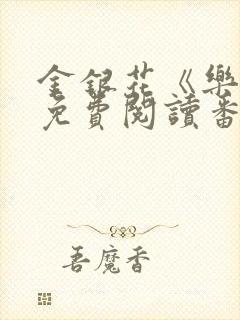 金銀花《樂
免費閱讀番
吾魔香